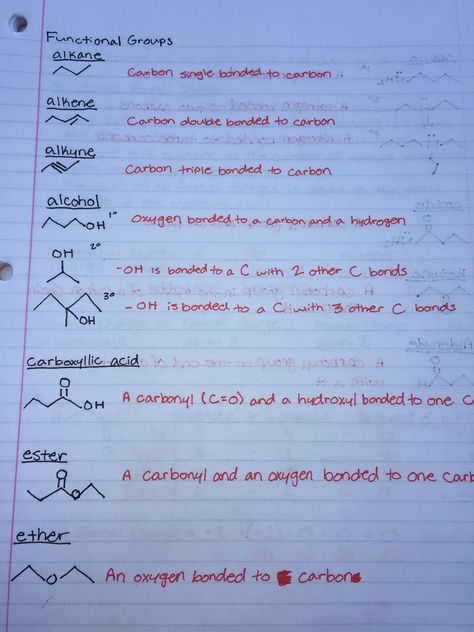 Functional Groups
alkane
Carbon single bonded to carbon.
alkene
Carbon double bonded to carbon
alkyne
Carbon triple bonded to carbon
alcohol
OH 1° Oxygen bonded to a carbon and a hydrogen
OH 2°
-OH is bonded to a C with 2 other C bonds
3°
OH - OH is bonded to a C with 3 other C bonds
carboxyllic acid
O
OH A carbonyl (C=O) and a hydroxyl bonded to one C
ester
O
O A carbonyl and an oxygen bonded to one carb
ether
O An oxygen bonded to carbons